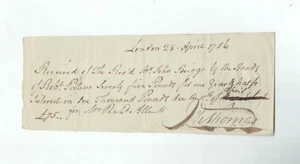 London 28 April 1786
Received of The Rev'd Mr John Briggs by the Hands
of Rob. Seventy five Pounds for one Year & half's
Interest on One Thousand Pounds due the of
£75 for Mr
Thomas